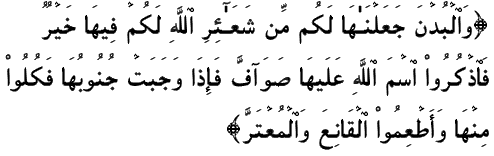 ﴿وَٱلۡبُدۡنَ جَعَلۡنَٰهَا لَكُم مِّن شَعَٰٓئِرِ ٱللَّهِ لَكُمۡ فِيهَا خَيۡرٞۖ
فَٱذۡكُرُواْ ٱسۡمَ ٱللَّهِ عَلَيۡهَا صَوَآفَّۖ فَإِذَا وَجَبَتۡ جُنُوبُهَا فَكُلُواْ
مِنۡهَا وَأَطۡعِمُواْ ٱلۡقَانِعَ وَٱلۡمُعۡتَرَّۚ﴾